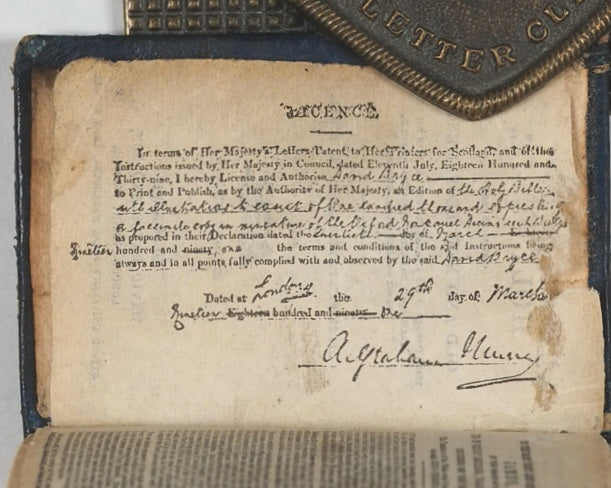 LETTER CL
LICENCE.
In terms of Her Majesty's Letters Patent to Her Printers for Scotland, and of the
Instructions issued by Her Majesty in Council, dated Eleventh July, Eighteen Hundred and
Thirty-nine, I hereby License and Authorise David Bryce
to Print and Publish, as by the Authority of Her Majesty, an Edition of the Holy Bible
with illustrations to consist of One hundred thousand copies being
a facsimile copy in miniature of the Oxford
as proposed in their Declaration dated the day of March Eighteen
Nineteen hundred and ninety, one the terms and conditions of the said Instructions being
always and in all points fully complied with and observed by the said David Bryce
Dated at London the 29th day of March
Nineteen Eighteen hundred and ninety One
A. Graham Murray